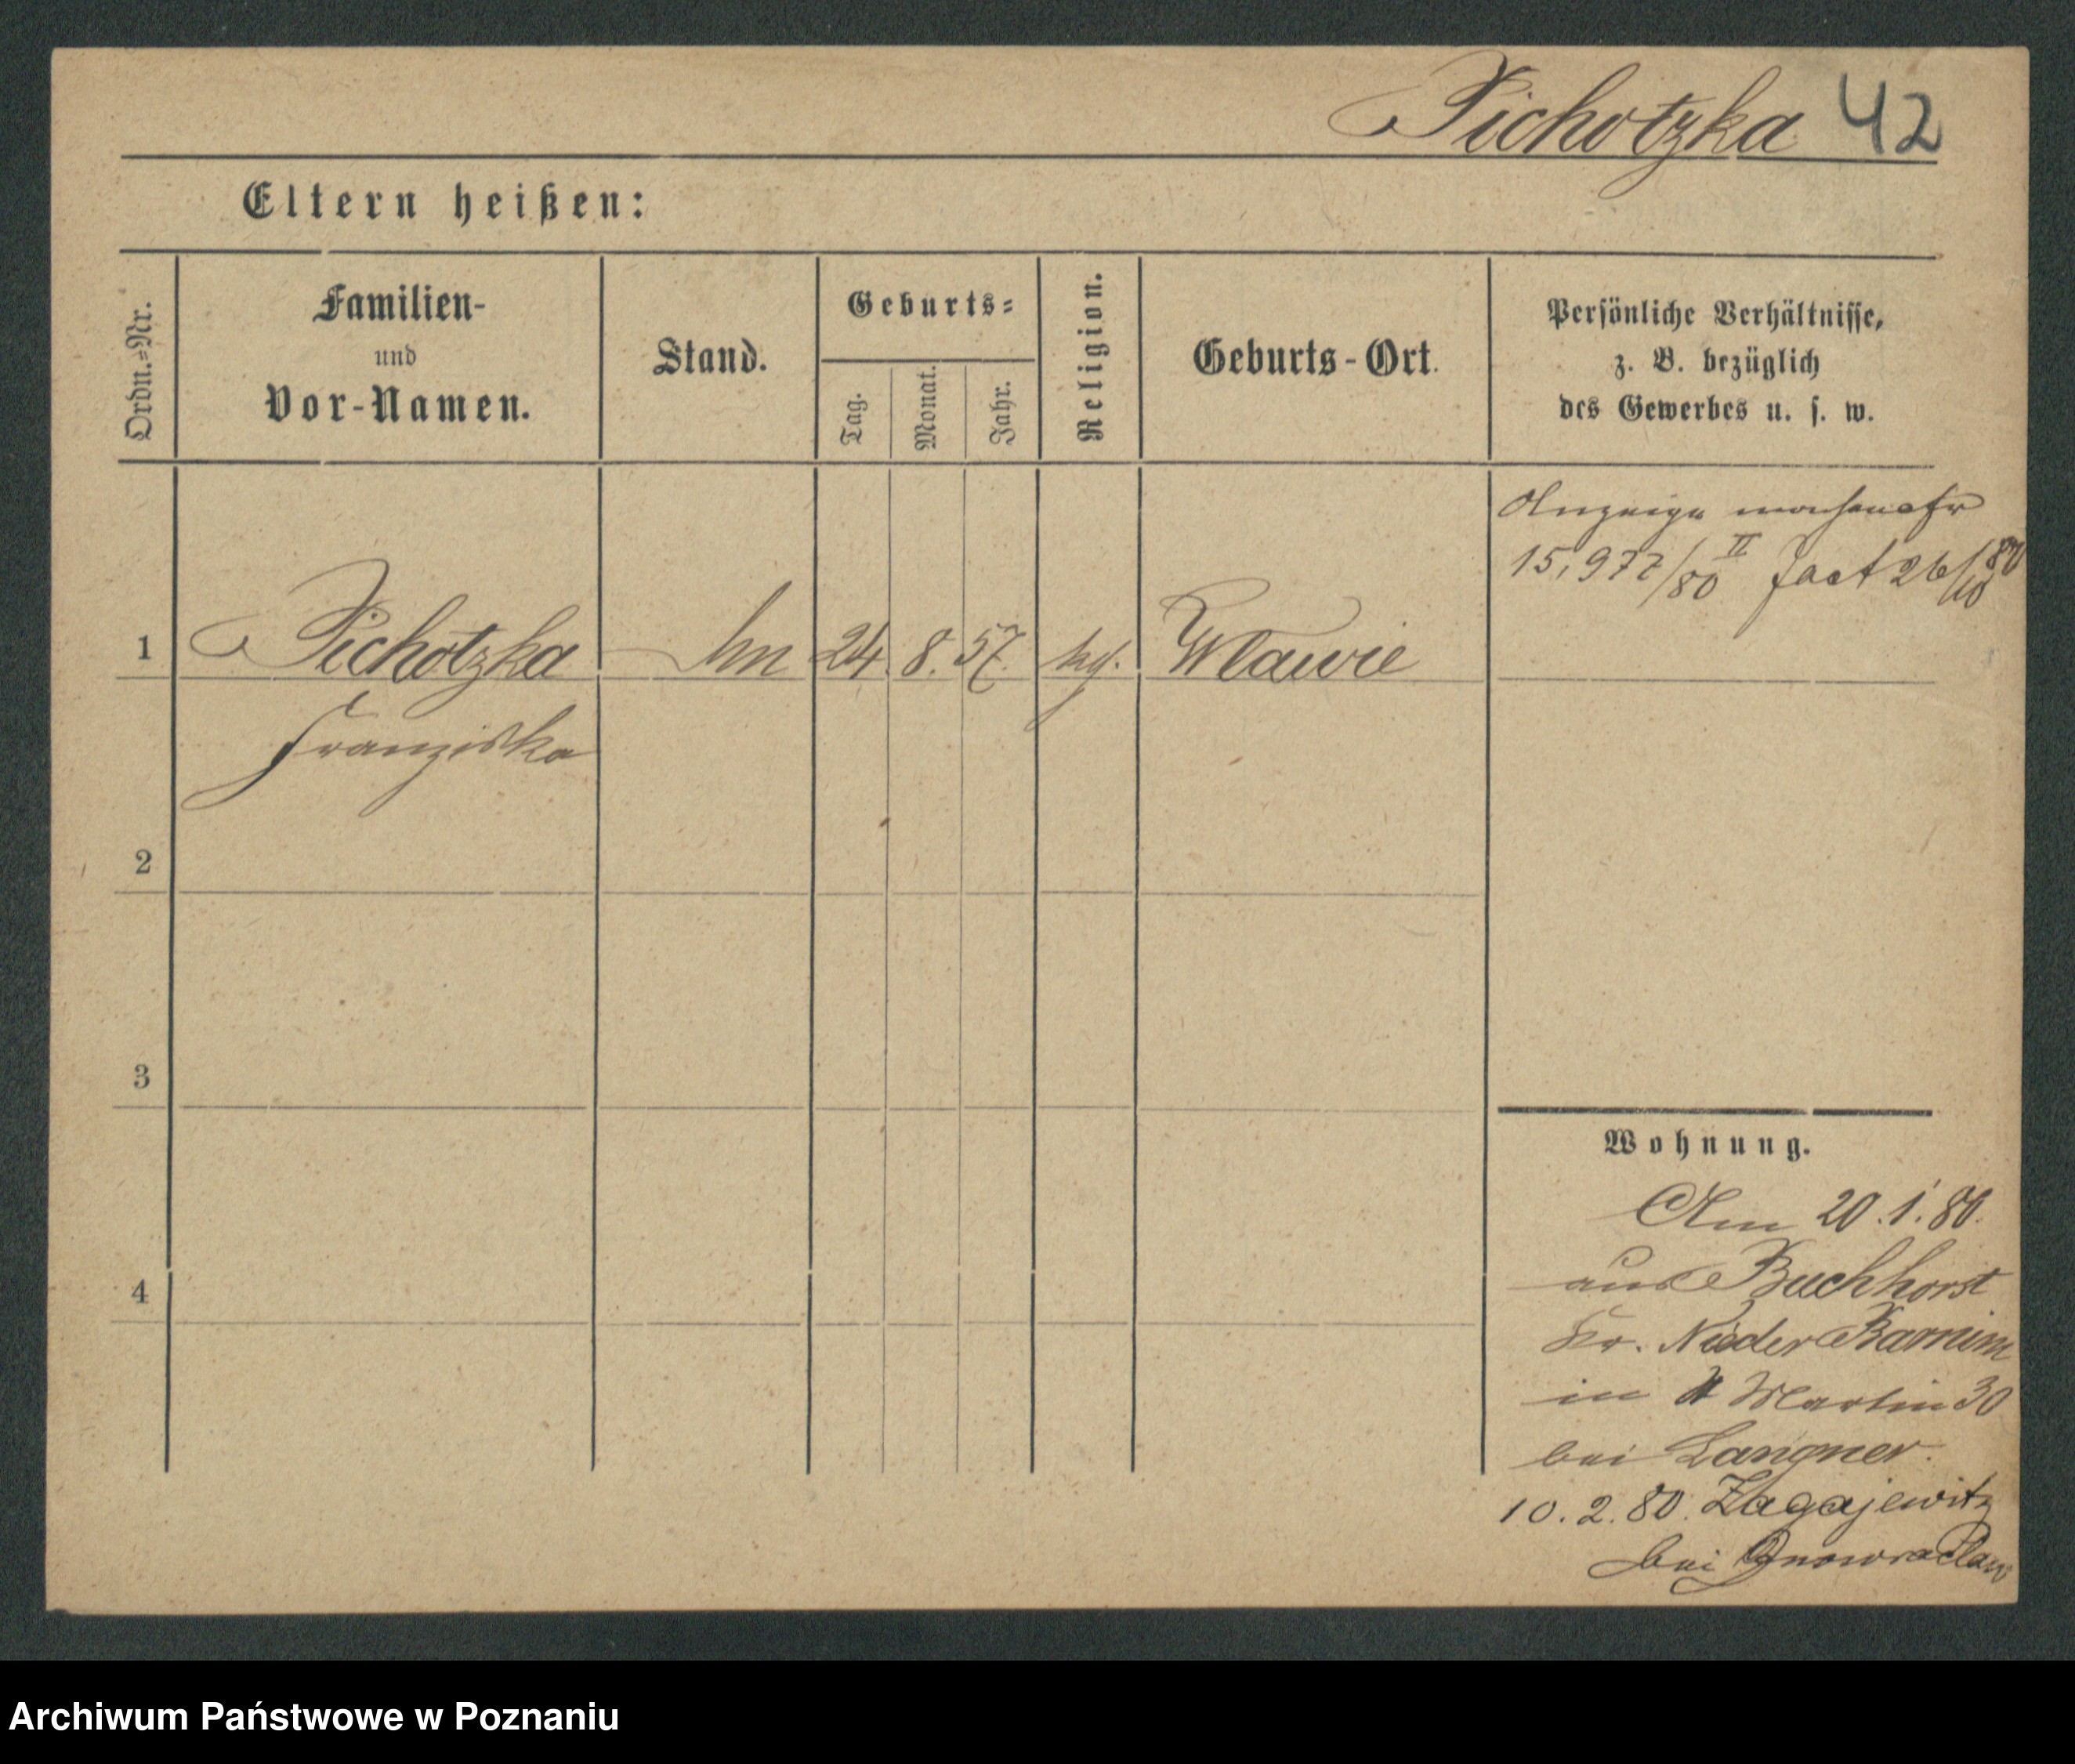 Pichotzka 42
Eltern heißen:
Ordn.=Nr.
Familien-
und
Vor-Namen.
Stand.
Geburts=
Tag.
Monat.
Jahr.
Religion.
Geburts-Ort.
Persönliche Verhältnisse,
z. B. bezüglich
des Gewerbes u. s. w.
Anzeige
15,977/80 II 26/10 80
1 Pichotzka 24. 8. 57. Wlawie
Franziska
2
3
4
Wohnung.
Am 20.1.80.
aus Buchhorst
Kr. Nieder Barnim
in St Martin 30
bei Langner.
10.2.80. Zagajewitz
bei Inowraclaw
Archiwum Państwowe w Poznaniu